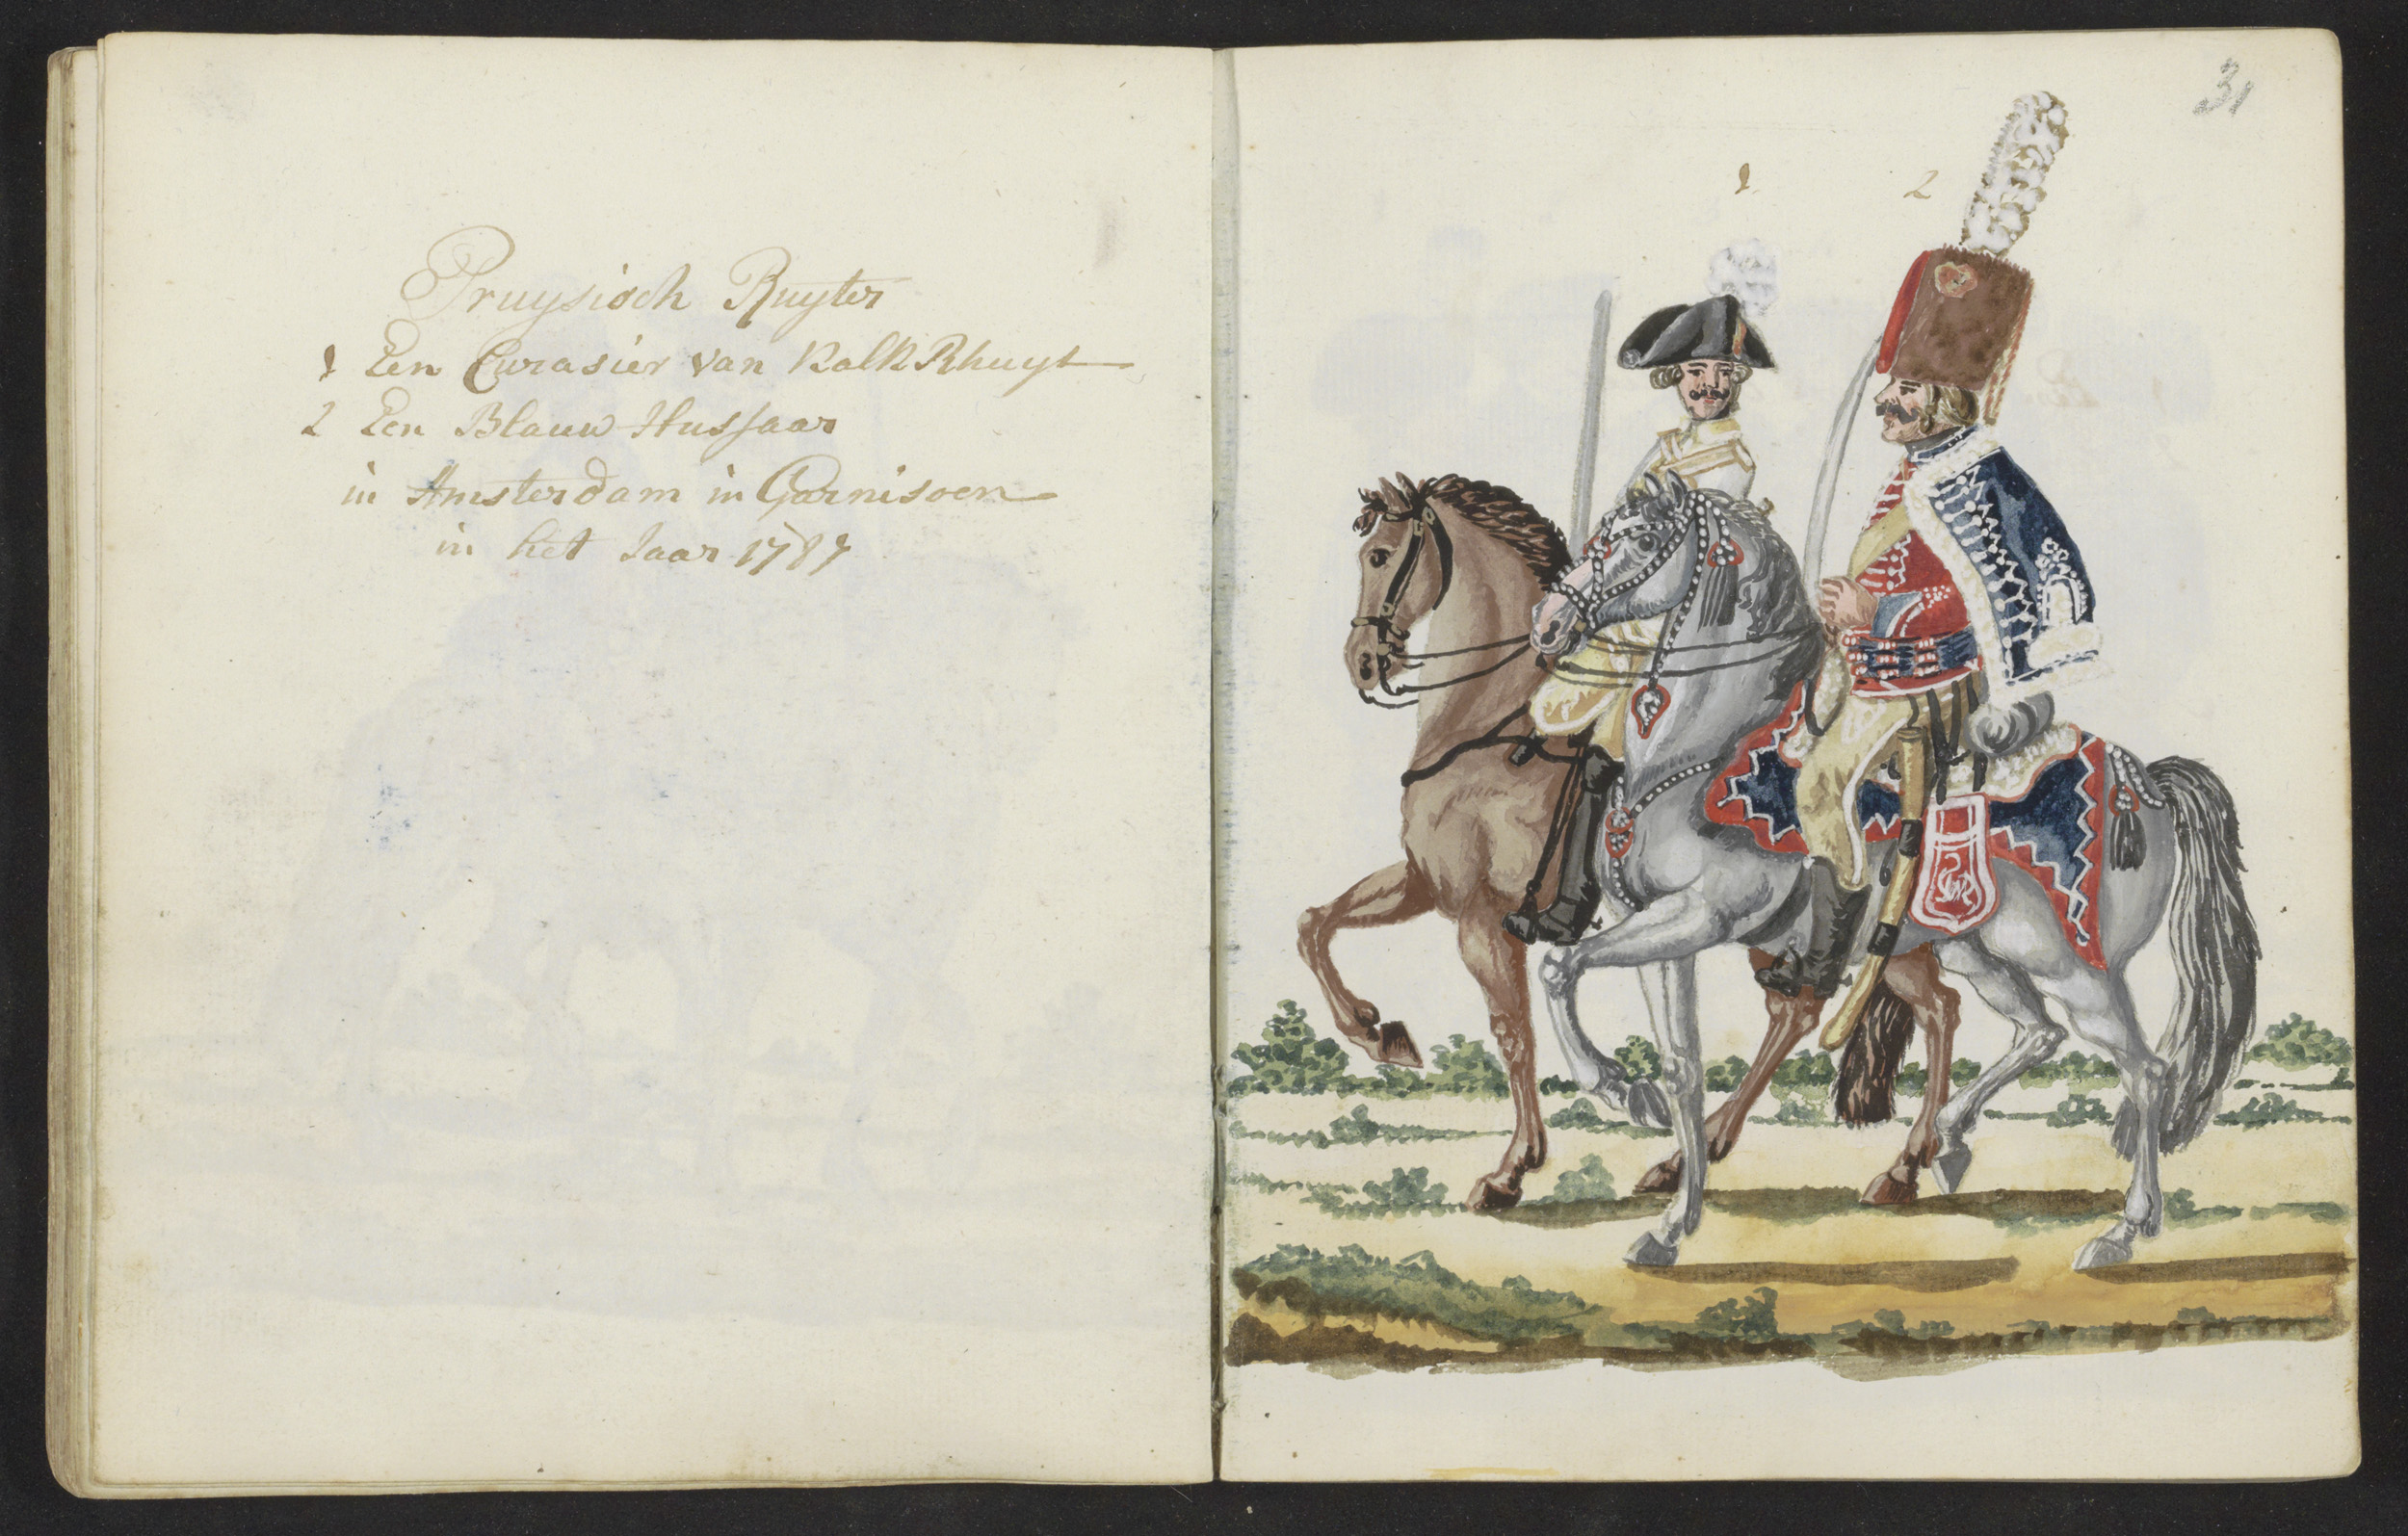 Pruysisch Ruyter
1 Een Curasier van Kalk Rhuyt
2 Een Blauw Hussaar
in Amsterdam in Garnisoen
in het Jaar 1787
31
1. 2